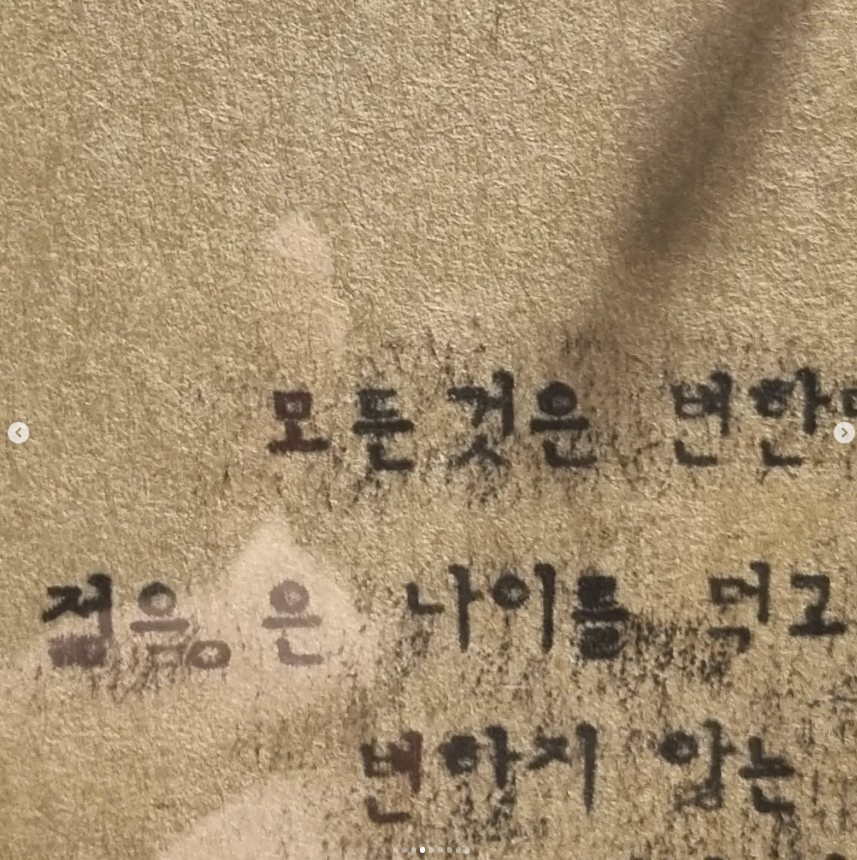 모든것은 변한다
젊음은 나이를 먹고
변하지 않는